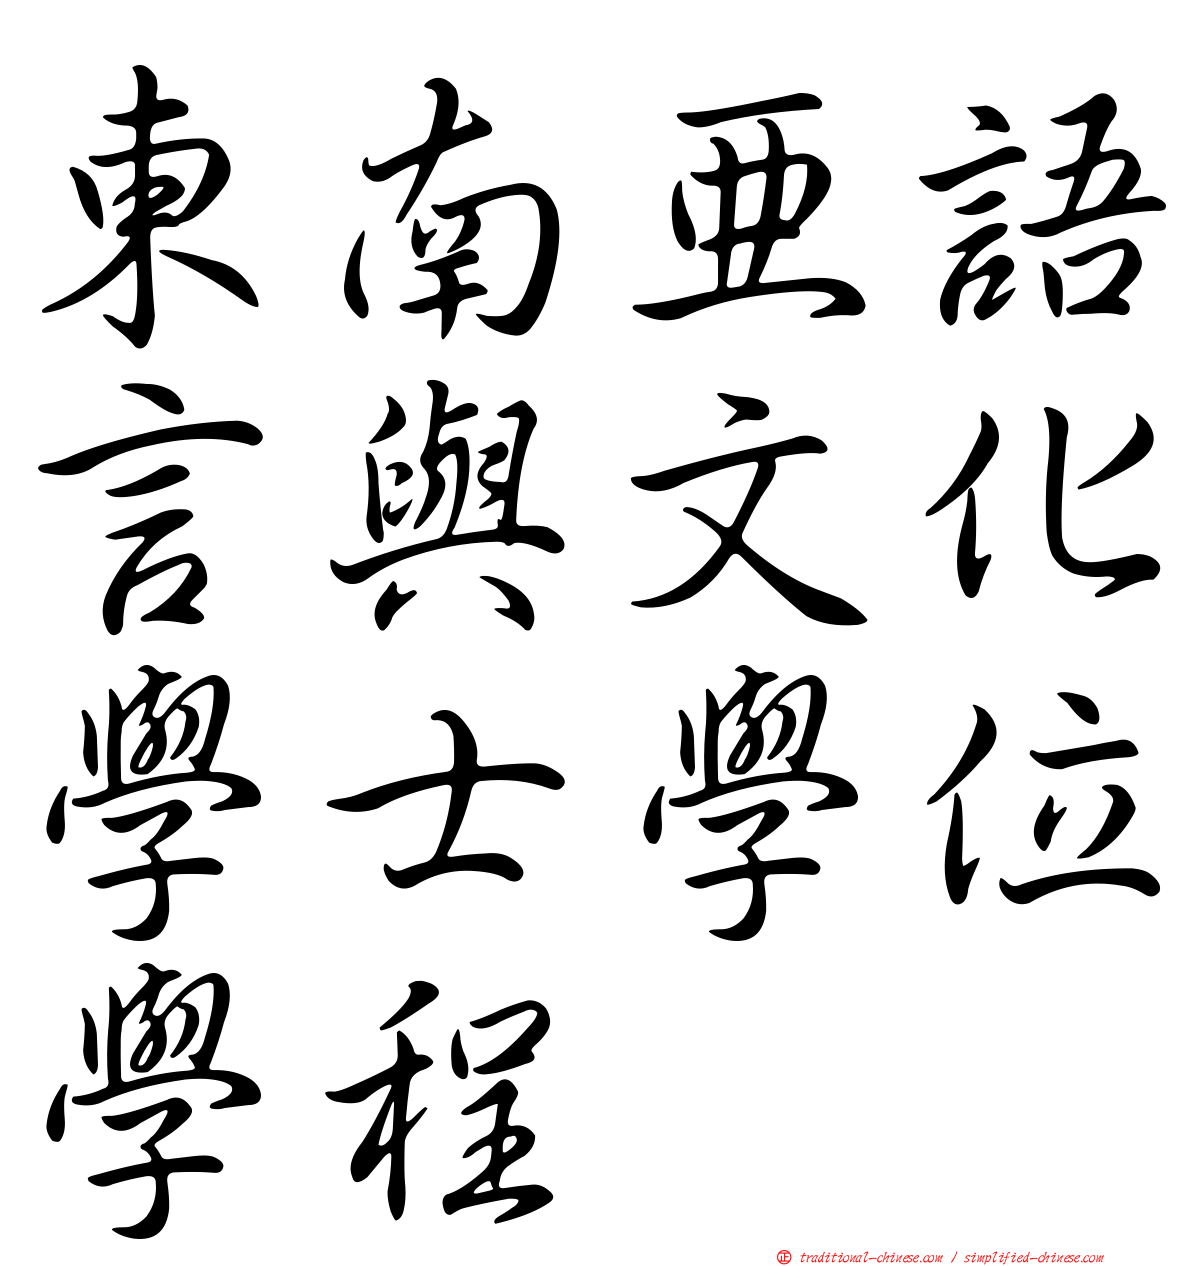 東南亞語
言與文化
學士學位
學程
正 traditional-chinese.com / simplified-chinese.com